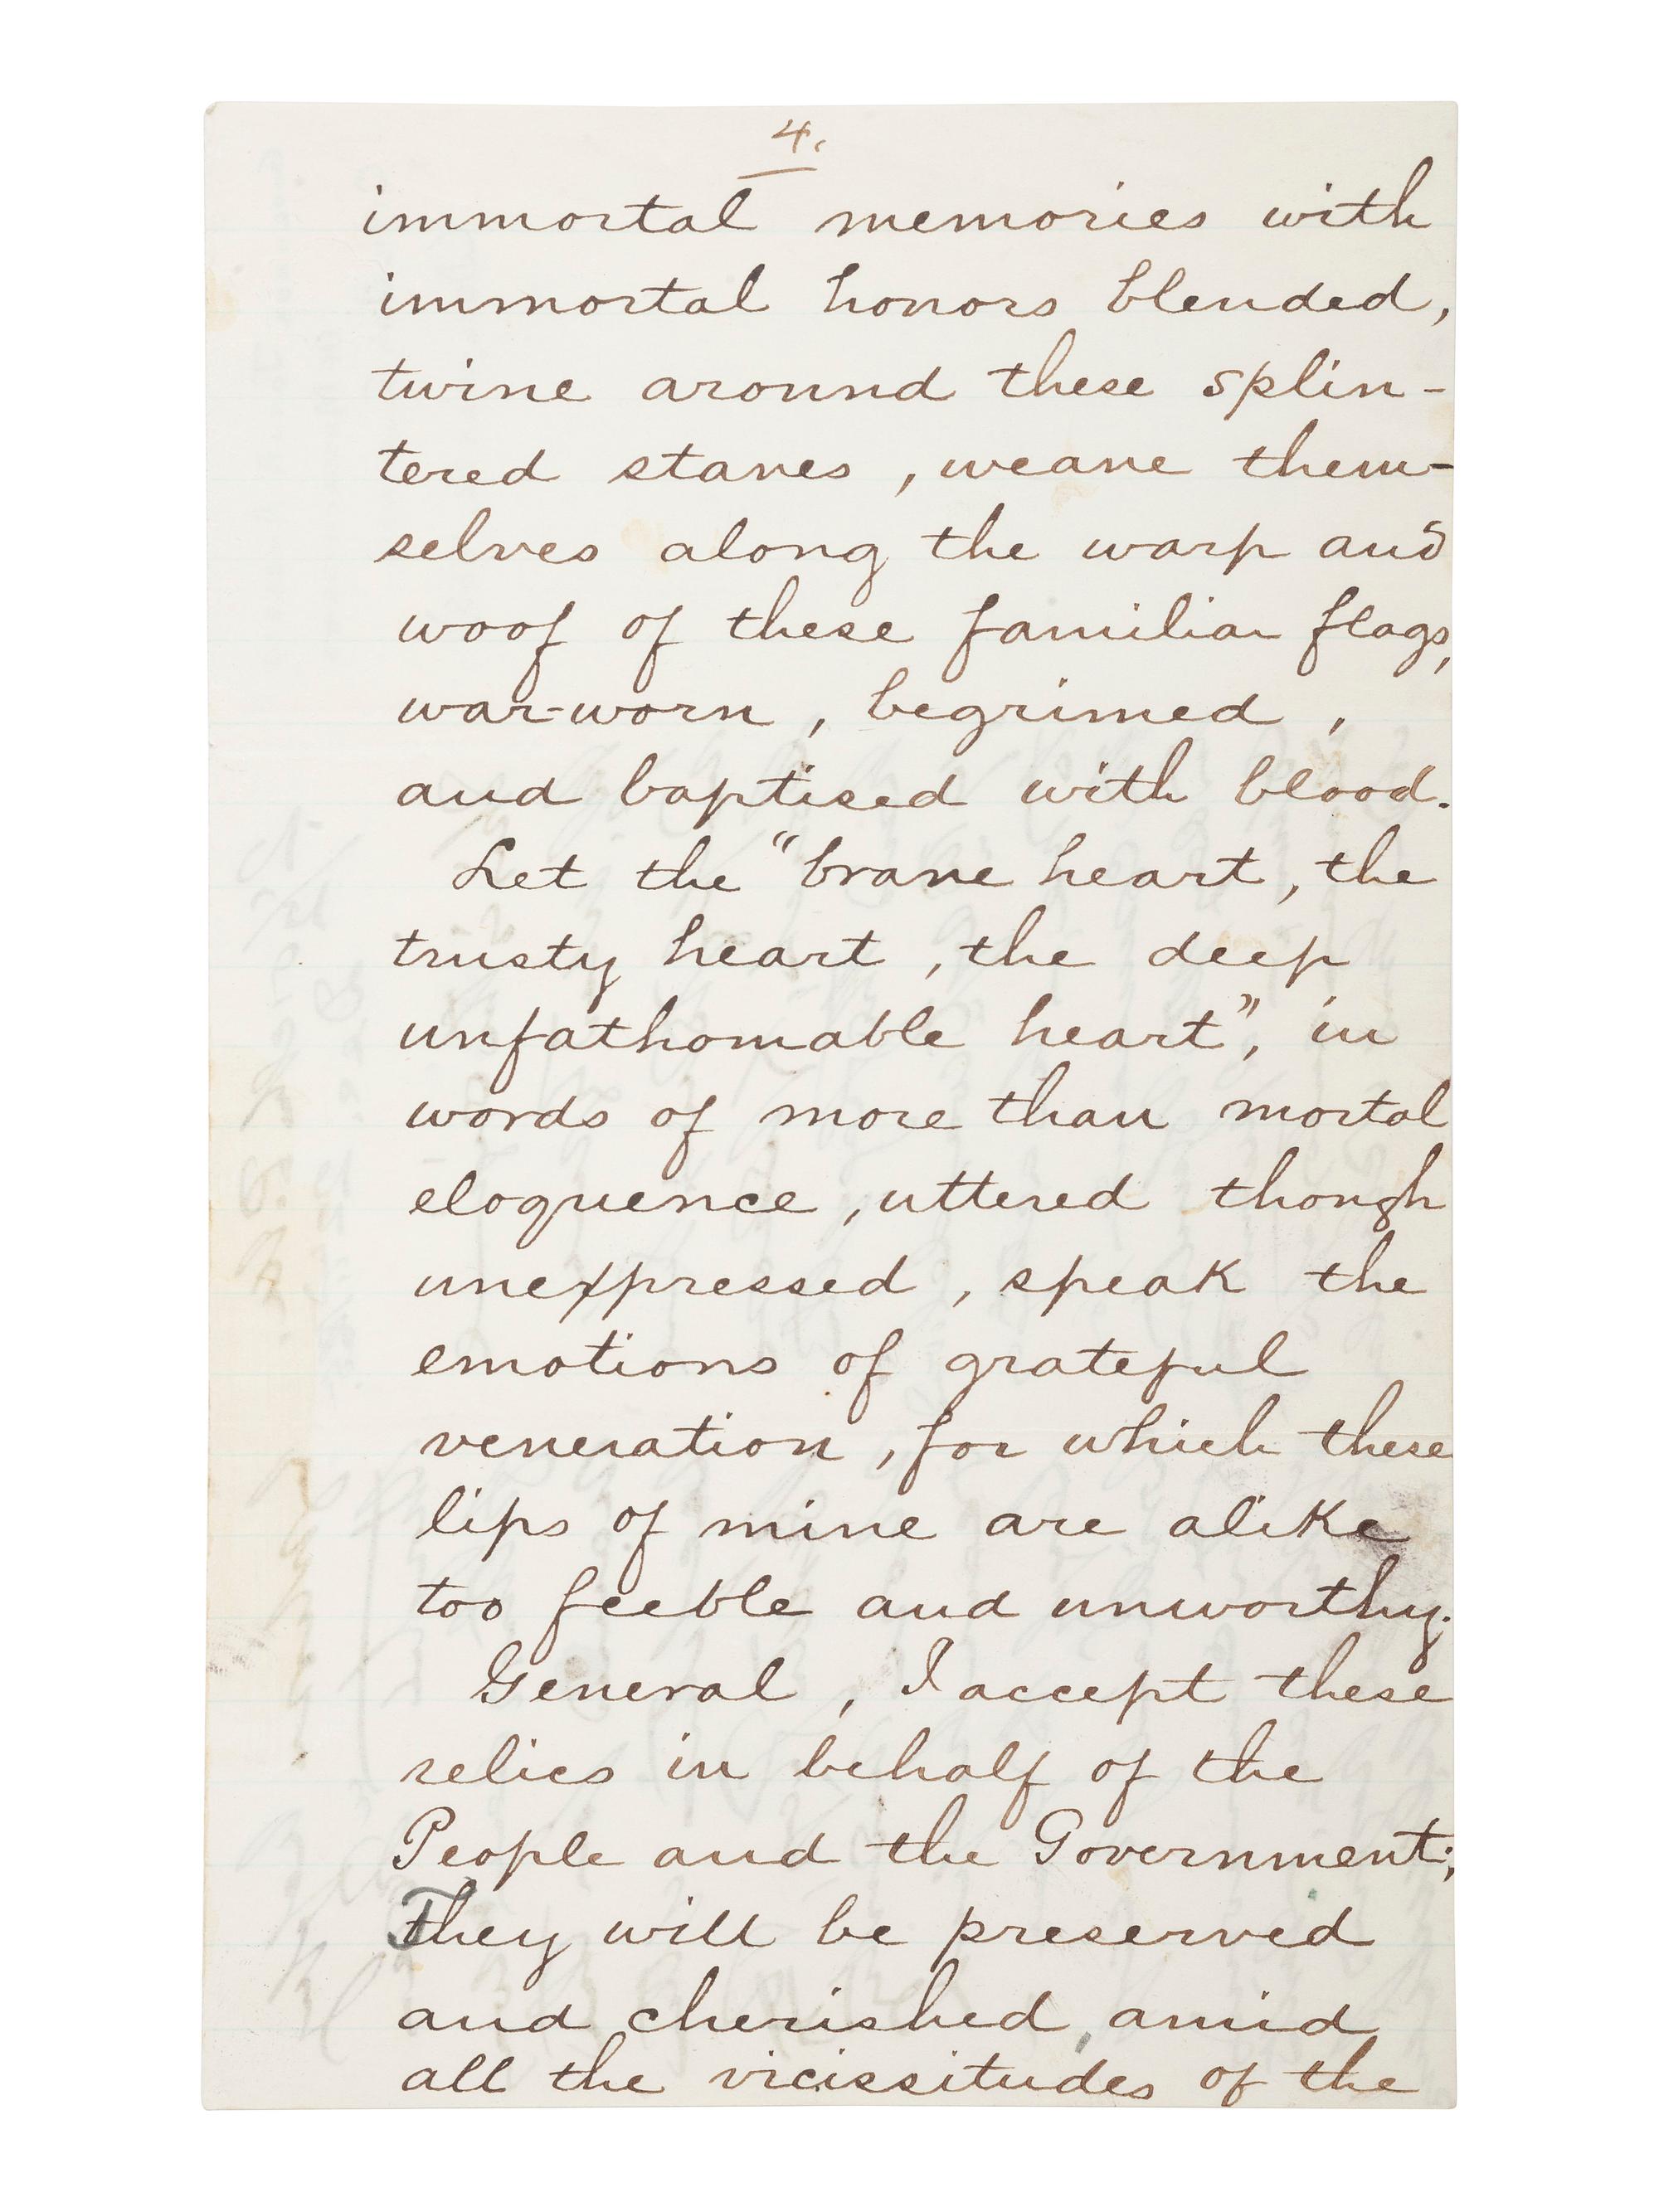 4.
immortal memories with
immortal honors blended,
twine around these splin-
tered staves, weave them-
selves along the warp and
woof of these familiar flags,
war-worn, begrimed,
and baptised with blood.
Let the "brave heart, the
trusty heart, the deep
unfathomable heart", in
words of more than mortal
eloquence, uttered though
unexpressed, speak the
emotions of grateful
veneration, for which these
lips of mine are alike
too feeble and unworthy.
General, I accept these
relics in behalf of the
People and the Government;
They will be preserved
and cherished, amid
all the vicissitudes of the